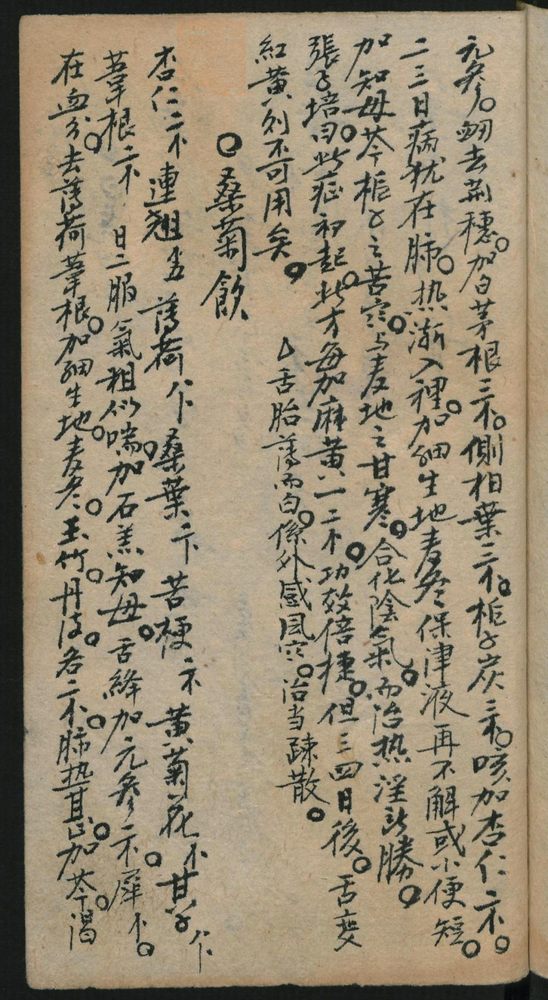 元參。衂去荆穗。加白茅根三錢。側柏葉三錢。梔子炭三錢。咳加杏仁二錢。
二三日病犹在肺。热漸入裡。加細生地麦冬保津液再不解或小便短。
加知母芩梔子之苦寒。与麦地之甘寒。合化陰氣。而治热淫所勝。
張子培曰。此症初起。此方每加麻黄一二錢。功效倍捷。但三四日後。舌变
紅黄。则不可用矣。
舌胎薄而白。係外感風寒。治当疎散。
○桑菊飲
杏仁二錢 連翘 薄荷 桑葉 苦梗 黄菊花 甘草
葦根二錢 日二服氣粗似喘。加石羔知母。舌絳加元參二錢。犀
在血分。去薄荷葦根。加細生地。麦冬。玉竹。丹皮。各二錢。肺热甚。加芩。渴